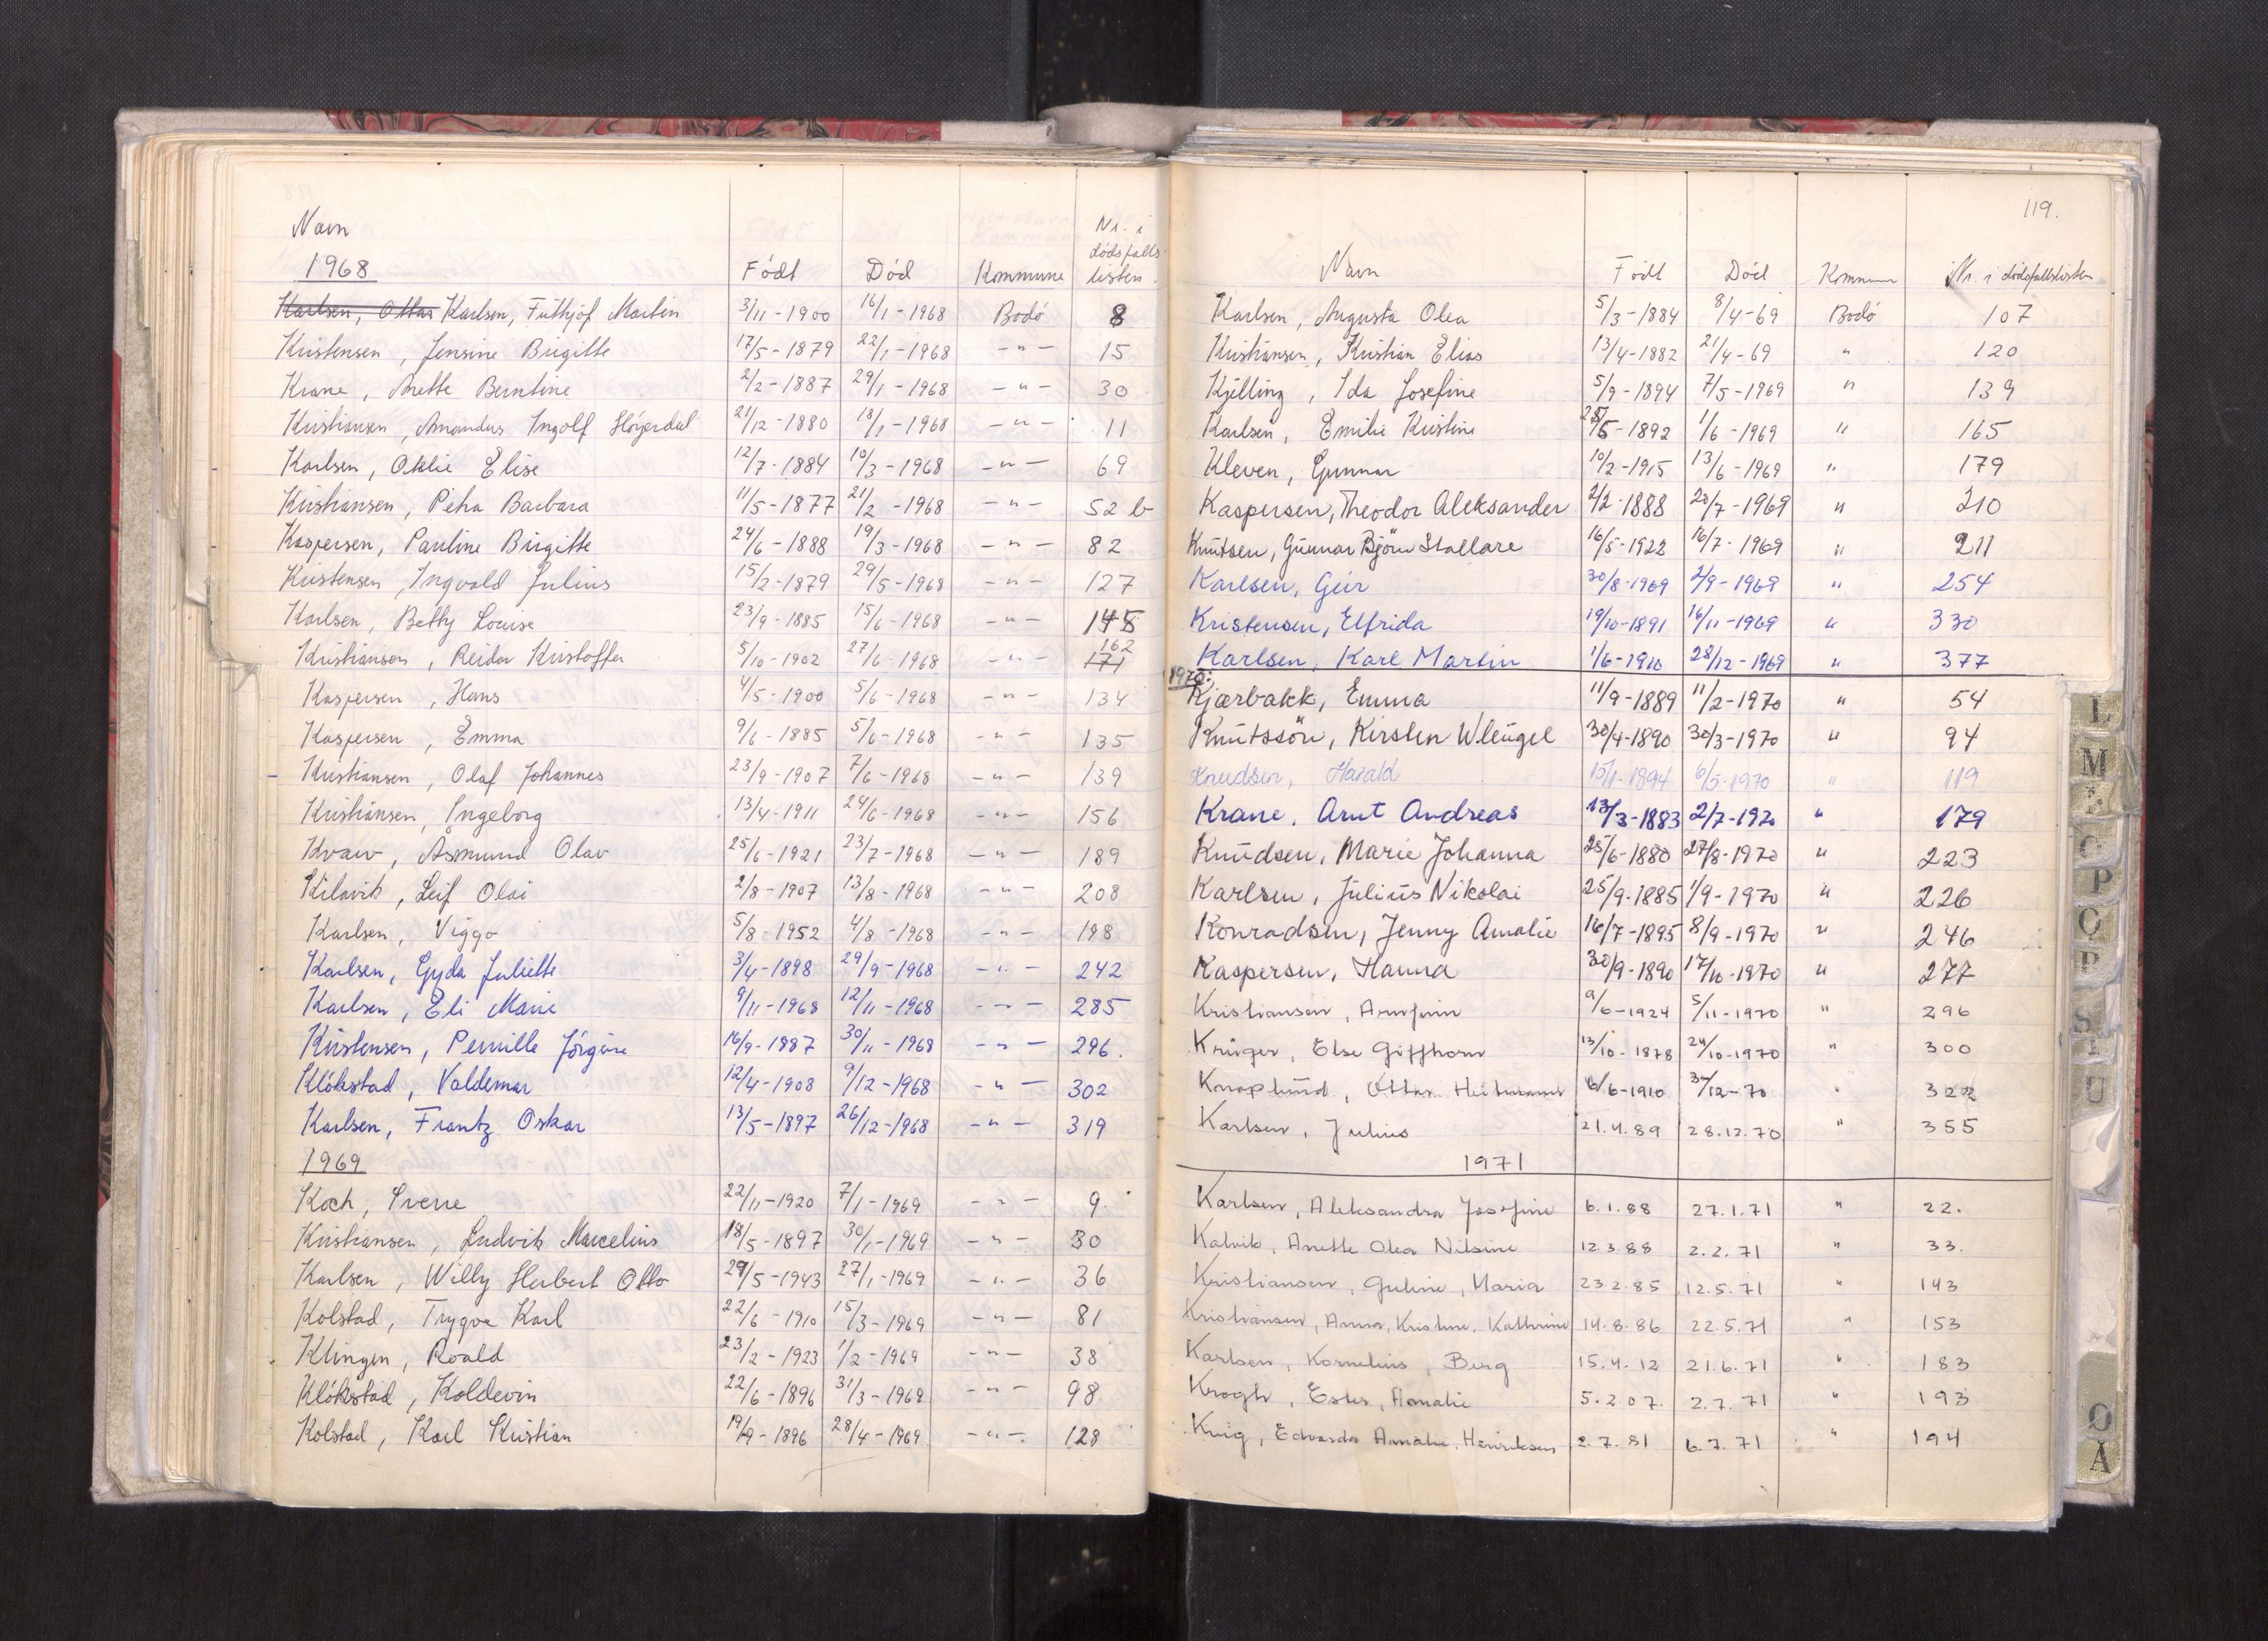 Navn Født Død Kommune Nr. i dødsfalls listen.
1968
Karlsen, Ottar Karlsen, Frithjof Martin 3/11-1900 16/1-1968 Bodø 8
Kristensen, Jensine Birgitte 17/5-1879 22/1-1968 -"- 15
Krane, Anette Berntine 2/2-1887 29/1-1968 -"- 30
Kristiansen, Amandus Ingolf Høyerdal 21/12-1880 18/1-1968 -"- 11
Karlsen, Oklie Elise 12/7-1884 10/3-1968 -"- 69
Kristiansen, Petra Barbara 11/5-1877 21/2-1968 -"- 52 b
Kaspersen, Pauline Birgitte 24/6-1888 19/3-1968 -"- 82
Kristensen, Ingvald Julius 15/2-1879 29/5-1968 -"- 127
Karlsen, Betty Louise 23/9-1885 15/6-1968 -"- 148
Kristiansen, Reidar Kristoffer 5/10-1902 27/6-1968 -"- 162 171
Kaspersen, Hans 4/5-1900 5/6-1968 -"- 134
Kaspersen, Emma 9/6-1885 5/6-1968 -"- 135
Kristiansen, Olaf Johannes 23/9-1907 7/6-1968 -"- 139
Kristiansen, Ingeborg 13/4-1911 24/6-1968 -"- 156
Kvaw, Åsmund Olav 25/6-1921 23/7-1968 -"- 189
Kilavik, Leif Olai 2/8-1907 13/8-1968 -"- 208
Karlsen, Viggo 5/8-1952 4/8-1968 -"- 198
Karlsen, Gyda Juliette 3/4-1898 29/9-1968 -"- 242
Karlsen, Eli Marie 9/11-1968 12/11-1968 -"- 285
Kristensen, Pernille Jørgine 16/9-1887 30/11-1968 -"- 296.
Kløkstad, Valdemar 12/4-1908 9/12-1968 -"- 302
Karlsen, Frantz Oskar 13/5-1897 26/12-1968 -"- 319
1969
Koch, Sverre 22/11-1920 7/1-1969 -"- 9
Kristiansen, Ludvik Marcelius 18/5-1897 30/1-1969 -"- 30
Karlsen, Willy Herbert Otto 29/5-1943 27/1-1969 -"- 36
Kolstad, Trygve Karl 22/6-1910 15/3-1969 -"- 81
Klingen, Roald 23/2-1923 1/2-1969 -"- 38
Kløkstad, Koldevin 22/6-1896 31/3-1969 -"- 98
Kolstad, Karl Kristian 19/9-1896 28/4-1969 -"- 128
119.
Navn Født Død Kommune Nr. i dødsfallslisten
Karlsen, Augusta Olea 5/3-1884 8/4-69 Bodø 107
Kristiansen, Kristian Elias 13/4-1882 21/4-69 " 120
Kjelling, Ida Josefine 5/9-1894 7/5-1969 " 139
Karlsen, Emilie Kristine /5-1892 1/6-1969 " 165
Kleven, Gunnar 10/2-1915 13/6-1969 " 179
Kaspersen, Theodor Aleksander 2/2-1888 20/7-1969 " 210
Knutsen, Gunnar Bjørn Stallare 16/5-1922 16/7-1969 " 211
Karlsen, Geir 30/8-1969 2/9-1969 " 254
Kristensen, Elfrida 19/10-1891 16/11-1969 " 330
Karlsen, Karl Martin 1/6-1910 28/12-1969 " 377
1970:
Kjærbakk, Emma 11/9-1889 11/2-1970 " 54
Knutssön, Kirsten Wleügel 30/4-1890 30/3-1970 " 94
Knudsen, Harald 15/1-1994 6/5-1970 " 119
Krane, Arnt Andreas 13/3-1883 2/7-1970 " 179
Knudsen, Marie Johanna 25/6-1880 27/8-1970 " 223
Karlsen, Julius Nikolai 25/9-1885 1/9-1970 " 226
Konradsen, Jenny Amalie 16/7-1895 8/9-1970 " 246
Kaspersen, Hanna 30/9-1890 17/10-1970 " 277
Kristiansen, Arnfinn 9/6-1924 5/11-1970 " 296
Krüger, Else Giffhorn 13/10-1878 24/10-1970 " 300
Knoplund, Ottar Heitmann 6/6-1910 3/12-70 " 322
Karlsen, Julius 21.4.89 28.12.70 " 355
1971
Karlsen, Aleksandra Josefine 6.1.88 27.1.71 " 22.
Kalvik, Anette Olea Nilsine 12.3.88 2.2.71 " 33.
Kristiansen, Guline, Maria 23.2.85 12.5.71 " 143
Kristiansen, Anna, Kristine, Kathrine 14.8.86 22.5.71 " 153
Karlsen, Kornelius, Berg 15.4.12 21.6.71 " 183
Krogh, Ester, Amalie 5.2.07. 2.7.71 " 193
Krüg, Edvarda Amalie, Henriksen 2.7.81 6.7.71 " 194
L
M
O
P
Q
R
S
U
Ø
Å